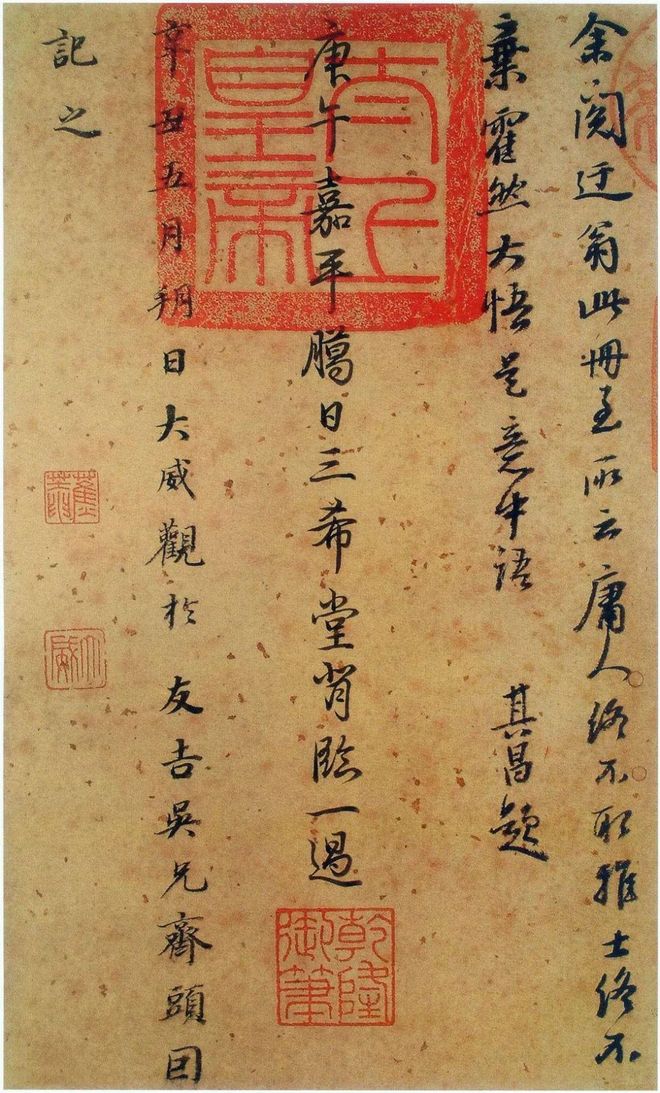 余閱迂翁此冊至所云庸人終不取雅士終不
棄霍然大悟是意中語 其昌題
庚午嘉平臈日三希堂肖臨一過
辛丑五月朔日大威觀於友吉吳兄齊頭因
記之
太上皇帝
乾隆御筆
大威